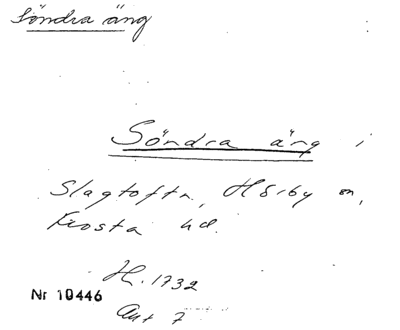 Söndra äng
Söndra äng i
Slagtofta, Hörby sn,
Frosta hd.
H. 1732
Nr 10446
Akt 7